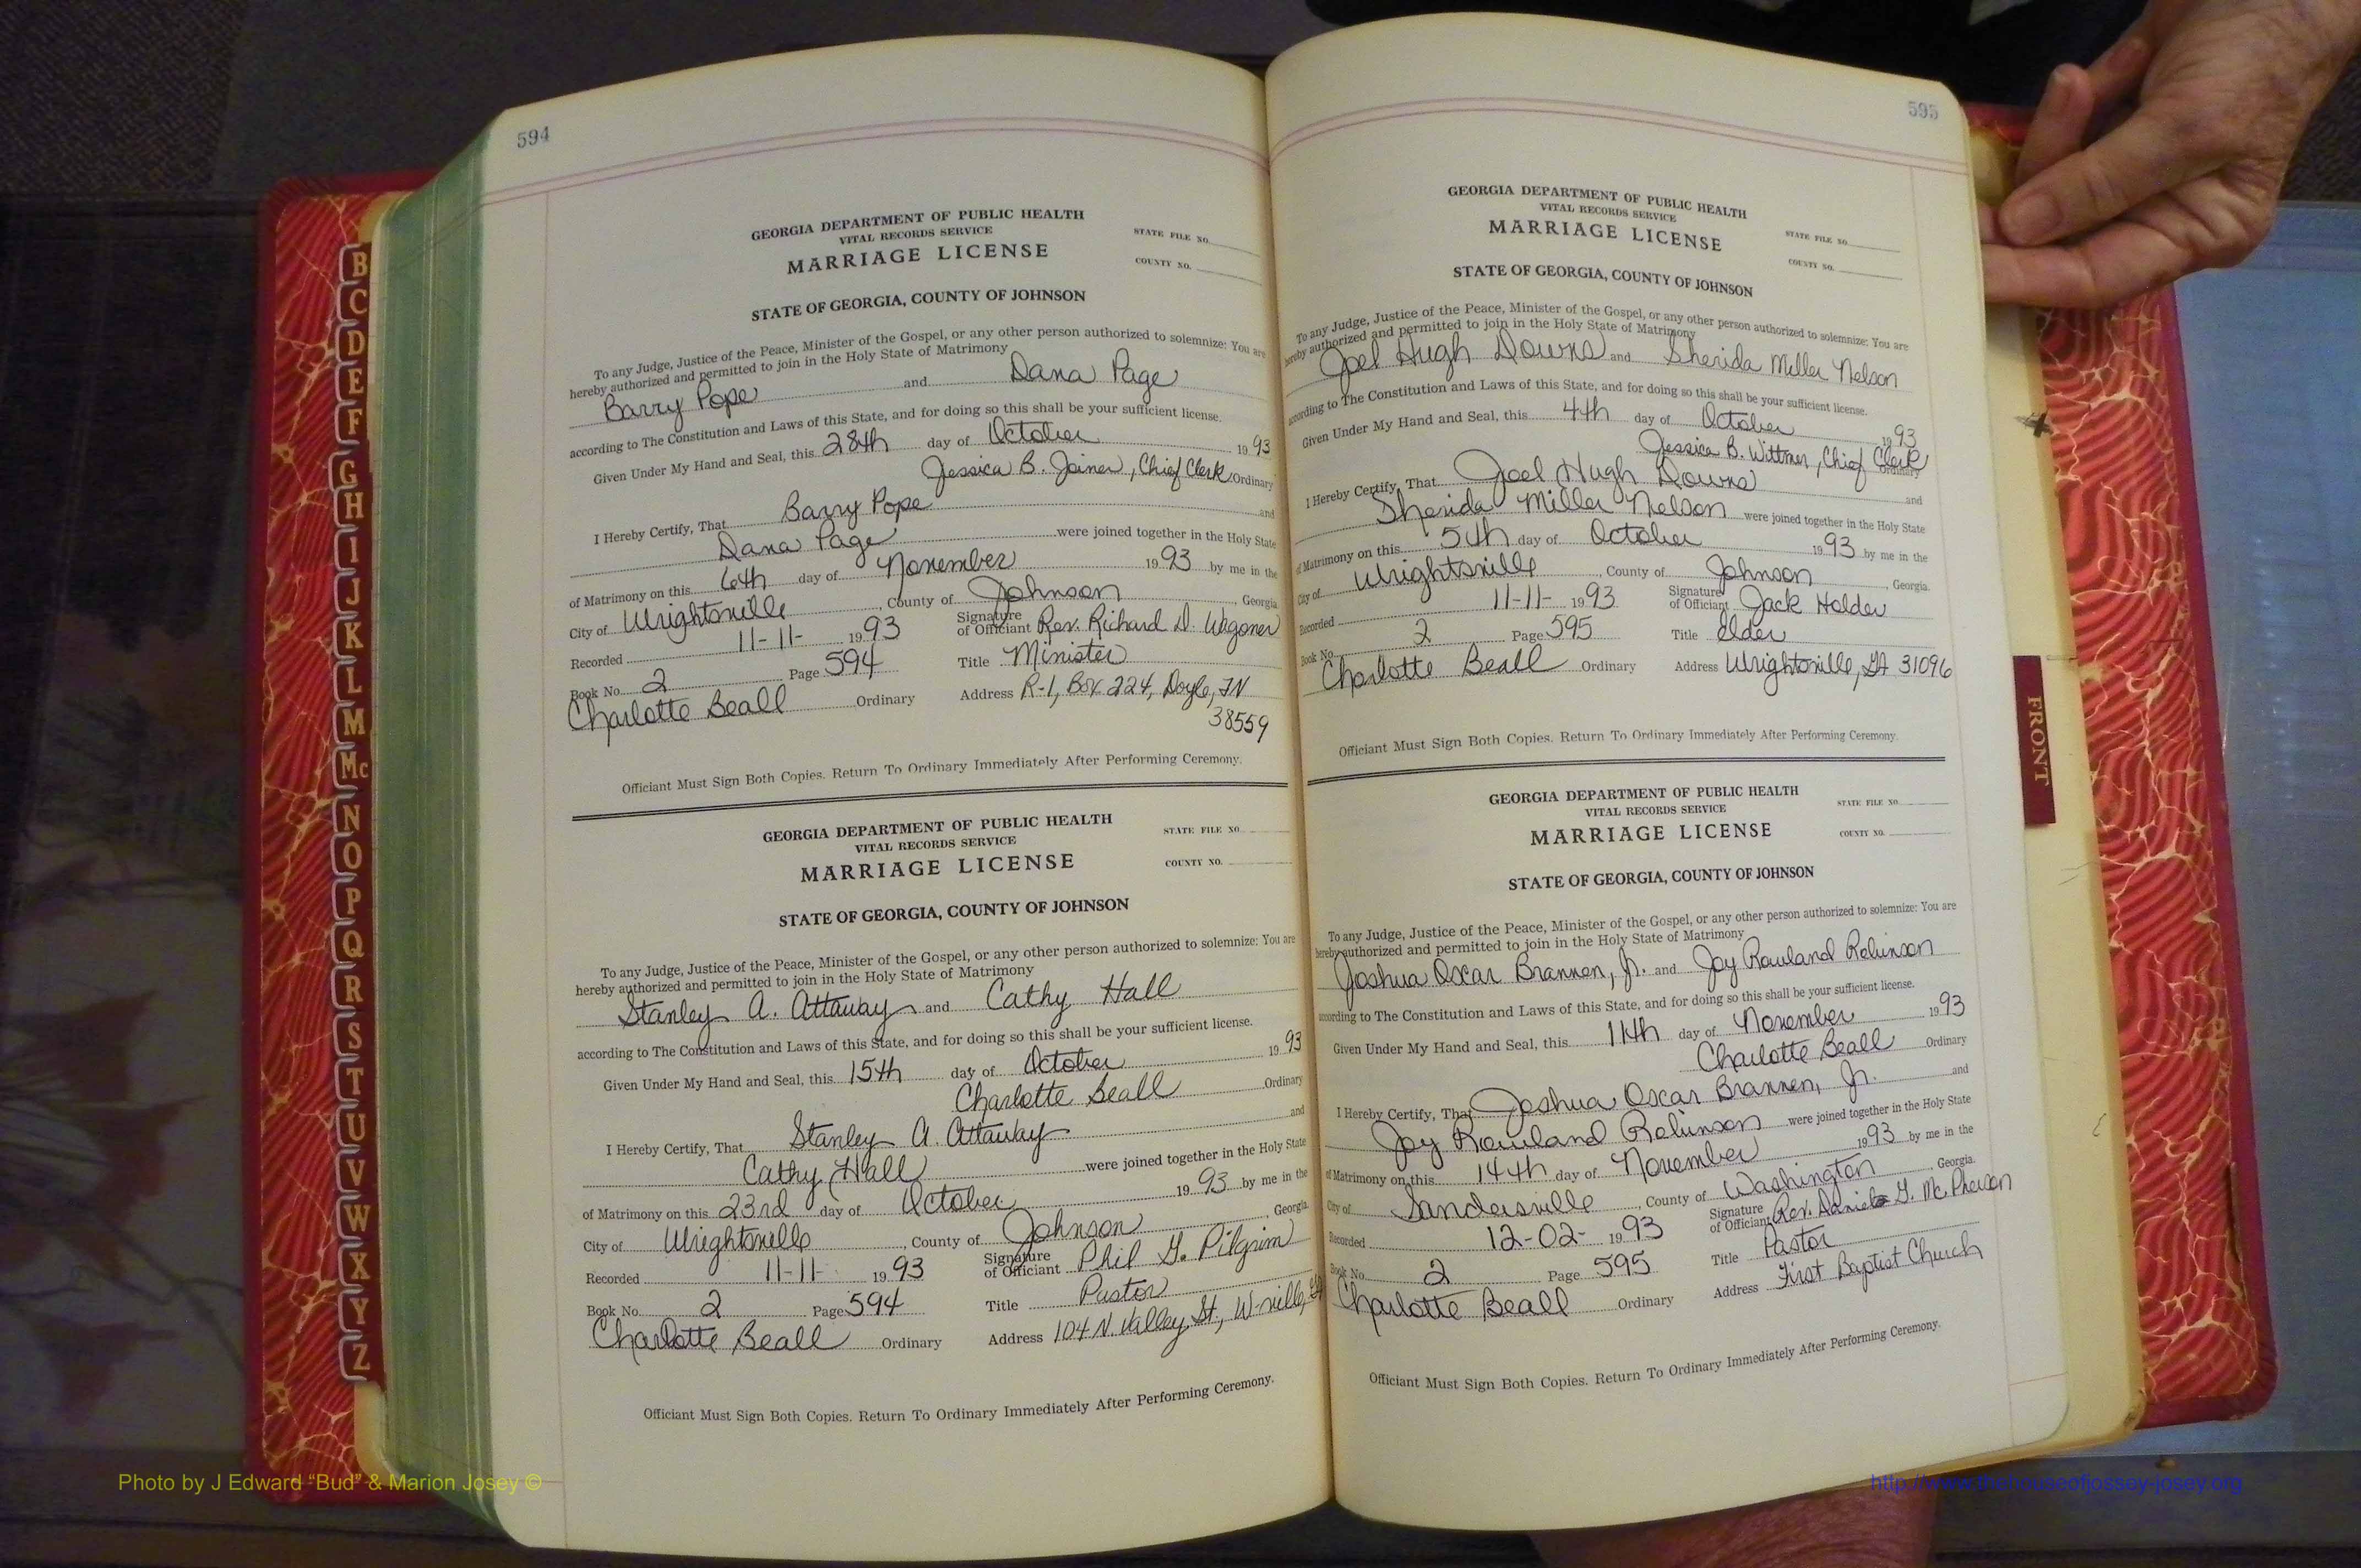 594
GEORGIA DEPARTMENT OF PUBLIC HEALTH
VITAL RECORDS SERVICE
MARRIAGE LICENSE
STATE FILE NO.
COUNTY NO.
STATE OF GEORGIA, COUNTY OF JOHNSON
To any Judge, Justice of the Peace, Minister of the Gospel, or any other person authorized to solemnize: You are
hereby authorized and permitted to join in the Holy State of Matrimony
Barry Pope and Dana Page
according to The Constitution and Laws of this State, and for doing so this shall be your sufficient license.
Given Under My Hand and Seal, this 28th day of October 1993
Jessica B. Joiner, Chief Clerk Ordinary
I Hereby Certify, That Barry Pope and
Dana Page were joined together in the Holy State
of Matrimony on this 6th day of November 1993 by me in the
City of Wrightsville, County of Johnson, Georgia
Recorded 11-11- 1993 Signature of Officiant Rev. Richard D. Wagoner
Book No. 2 Page 594 Title Minister
Charlotte Beall Ordinary Address R-1, Box 224, Doyle, TN
38559
Officiant Must Sign Both Copies. Return To Ordinary Immediately After Performing Ceremony.
GEORGIA DEPARTMENT OF PUBLIC HEALTH
VITAL RECORDS SERVICE
MARRIAGE LICENSE
STATE FILE NO.
COUNTY NO.
STATE OF GEORGIA, COUNTY OF JOHNSON
To any Judge, Justice of the Peace, Minister of the Gospel, or any other person authorized to solemnize: You are
hereby authorized and permitted to join in the Holy State of Matrimony
Stanley A. Attaway and Cathy Hall
according to The Constitution and Laws of this State, and for doing so this shall be your sufficient license.
Given Under My Hand and Seal, this 15th day of October 1993
Charlotte Beall Ordinary
I Hereby Certify, That Stanley A. Attaway and
Cathy Hall were joined together in the Holy State
of Matrimony on this 23rd day of October 1993 by me in the
City of Wrightsville, County of Johnson, Georgia
Recorded 11-11- 1993 Signature of Officiant Phil G. Pilgrim
Book No. 2 Page 594 Title Pastor
Charlotte Beall Ordinary Address 104 N. Valley St., W-ville, GA
Officiant Must Sign Both Copies. Return To Ordinary Immediately After Performing Ceremony.
595
GEORGIA DEPARTMENT OF PUBLIC HEALTH
VITAL RECORDS SERVICE
MARRIAGE LICENSE
STATE FILE NO.
COUNTY NO.
STATE OF GEORGIA, COUNTY OF JOHNSON
To any Judge, Justice of the Peace, Minister of the Gospel, or any other person authorized to solemnize: You are
hereby authorized and permitted to join in the Holy State of Matrimony
Joel Hugh Downs and Sherida Miller Nelson
according to The Constitution and Laws of this State, and for doing so this shall be your sufficient license.
Given Under My Hand and Seal, this 4th day of October 1993
Jessica B. Wittmer, Chief Clerk Ordinary
I Hereby Certify, That Joel Hugh Downs and
Sherida Miller Nelson were joined together in the Holy State
of Matrimony on this 5th day of October 1993 by me in the
City of Wrightsville, County of Johnson, Georgia.
Recorded 11-11- 1993 Signature of Officiant Jack Holder
Book No. 2 Page 595 Title Elder
Charlotte Beall Ordinary Address Wrightsville, GA 31096
Officiant Must Sign Both Copies. Return To Ordinary Immediately After Performing Ceremony.
GEORGIA DEPARTMENT OF PUBLIC HEALTH
VITAL RECORDS SERVICE
MARRIAGE LICENSE
STATE FILE NO.
COUNTY NO.
STATE OF GEORGIA, COUNTY OF JOHNSON
To any Judge, Justice of the Peace, Minister of the Gospel, or any other person authorized to solemnize: You are
hereby authorized and permitted to join in the Holy State of Matrimony
Joshua Oscar Brannen, Jr. and Joy Rowland Robinson
according to The Constitution and Laws of this State, and for doing so this shall be your sufficient license.
Given Under My Hand and Seal, this 11th day of November 1993
Charlotte Beall Ordinary
I Hereby Certify, That Joshua Oscar Brannen, Jr. and
Joy Rowland Robinson were joined together in the Holy State
of Matrimony on this 14th day of November 1993 by me in the
City of Sandersville, County of Washington, Georgia.
Recorded 12-02- 1993 Signature of Officiant Rev. Daniel G. McPherson
Book No. 2 Page 595 Title Pastor
Charlotte Beall Ordinary Address First Baptist Church
Officiant Must Sign Both Copies. Return To Ordinary Immediately After Performing Ceremony.
B
C
D
E
F
G
H
I
J
K
L
M
Mc
N
O
P
Q
R
S
T
U
V
W
X
Y
Z
FRONT
Photo by J Edward “Bud” & Marion Josey ©
http://www.thehouseofjossey-josey.org